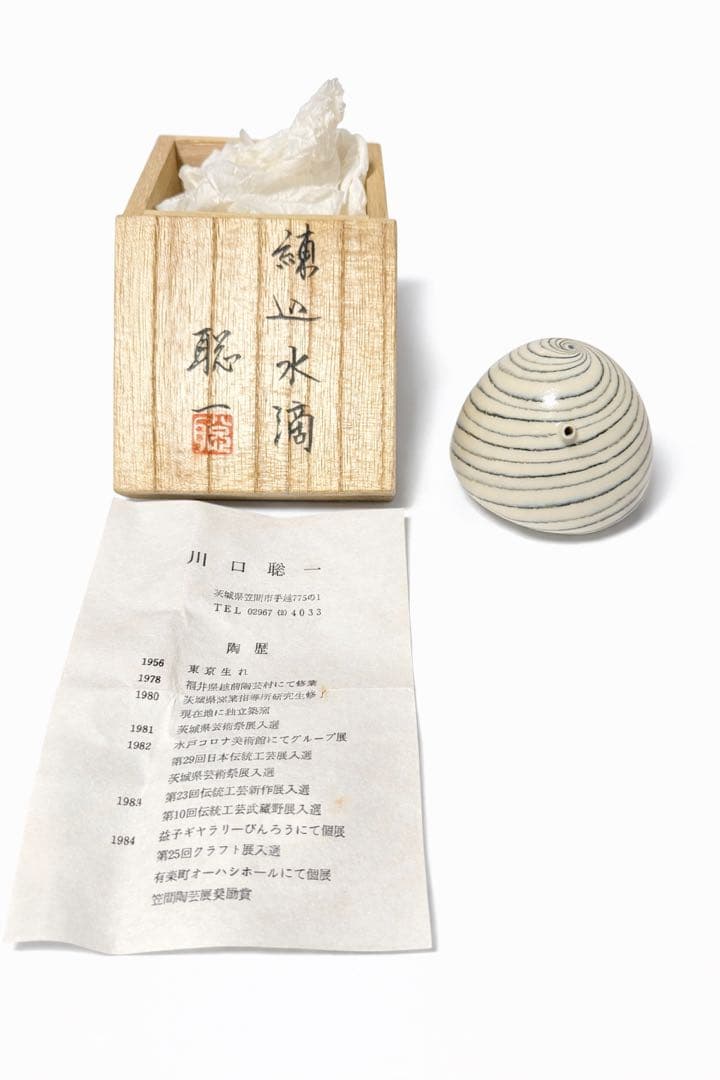 練込水滴
聡一
川口聡一
茨城県笠間市手越775の1
TEL 02967 (2) 4033
陶歴
1956 東京生れ
1978 福井県越前陶芸村にて修業
1980 茨城県窯業指導所研究生修了
現在地に独立築窯
1981 茨城県芸術祭展入選
1982 水戸コロナ美術館にてグループ展
第29回日本伝統工芸展入選
茨城県芸術祭展入選
1983 第23回伝統工芸新作展入選
第10回伝統工芸武蔵野展入選
1984 益子ギャラリーびんろうにて個展
第25回クラフト展入選
有楽町オーハシホールにて個展
笠間陶芸展奨励賞